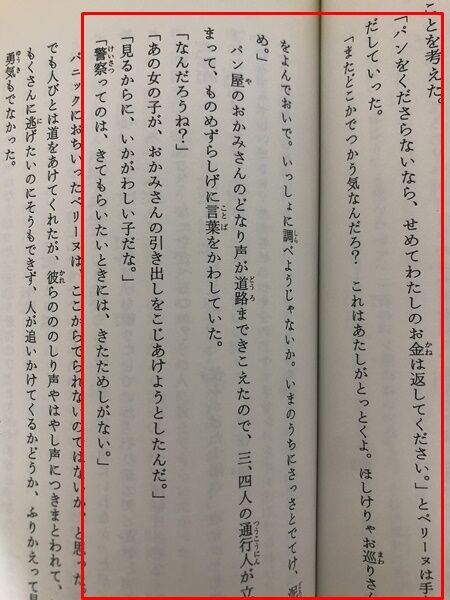 ことを考えた。
「パンをくださらないなら、せめてわたしのお金は返してください。」とペリーヌは手
だしていった。
「またどこかでつかう気なんだろ? これはあたしがとっとくよ。ほしけりゃお巡りさん
をよんでおいで。いっしょに調べようじゃないか。いまのうちにさっさとでてけ、泥
め。」
パン屋のおかみさんのどなり声が道路まできこえたので、三、四人の通行人が立
まって、ものめずらしげに言葉をかわしていた。
「なんだろうね?」
「あの女の子が、おかみさんの引き出しをこじあけようとしたんだ。」
「見るからに、いかがわしい子だな。」
「警察ってのは、きてもらいたいときには、きたためしがない。」
パニックにおちいったペリーヌは、ここからでられないのではないか、と思った。
でも人びとは道をあけてくれたが、彼らのののしり声やはやし声につきまとわれて、
もくさんに逃げたいのにそうもできず、人が追いかけてくるかどうか、ふりかえって見
勇気もでなかった。